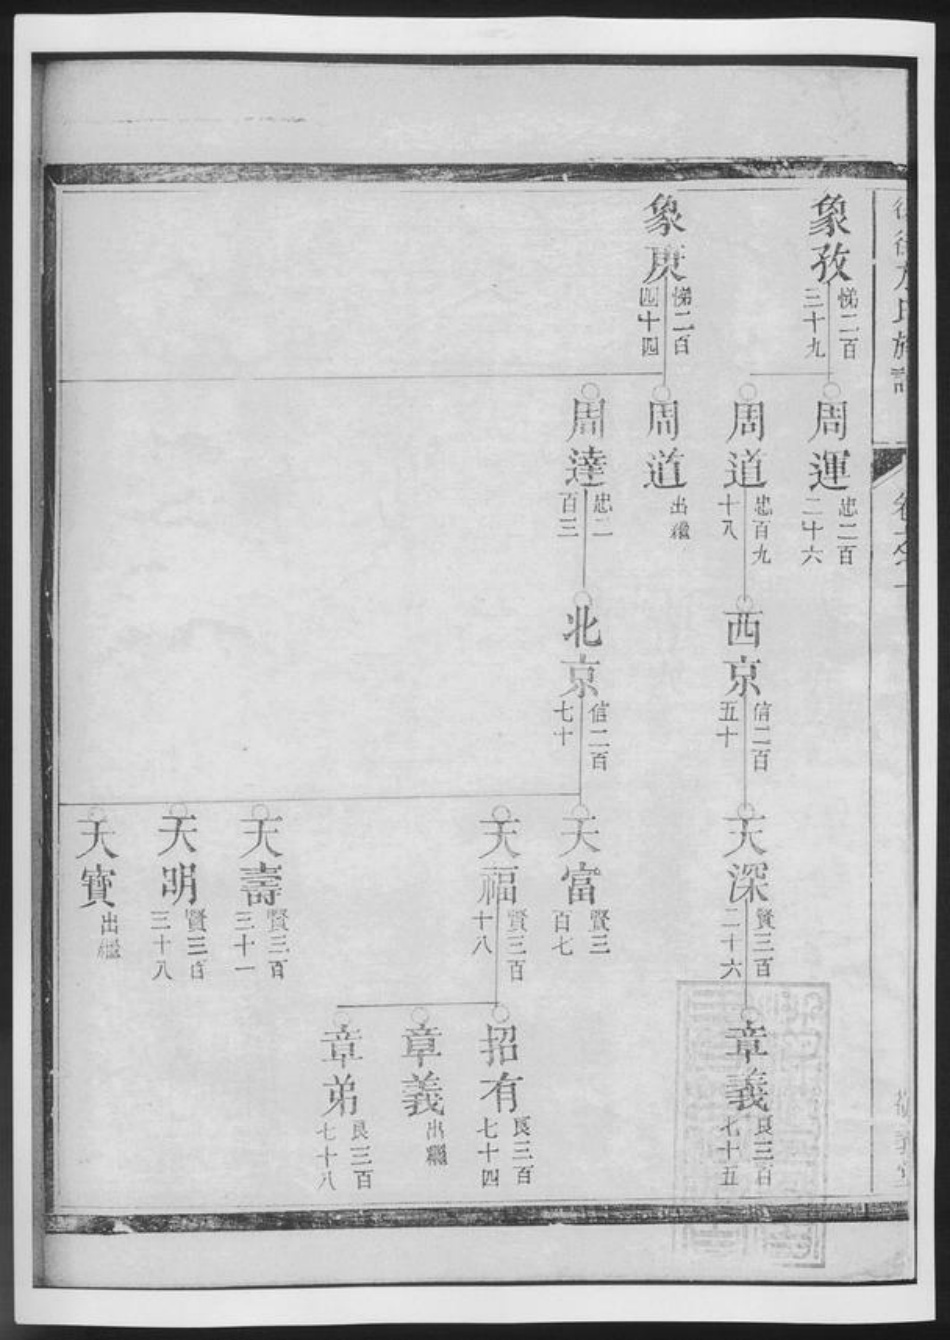 象孜 悌二百三十九
象庚 悌二百四十四
周運 忠二百二十六
周道 忠百九十八
周道 出繼
周達 忠二百三
西京 信二百五十
北京 信二百七十
天深 賢三百二十六
天富 賢三百七
天福 賢三百十八
天壽 賢三百三十一
天明 賢三百三十八
天寶 出繼
章義 良三百七十五
招有 良三百七十四
章義 出繼
章弟 良三百七十八